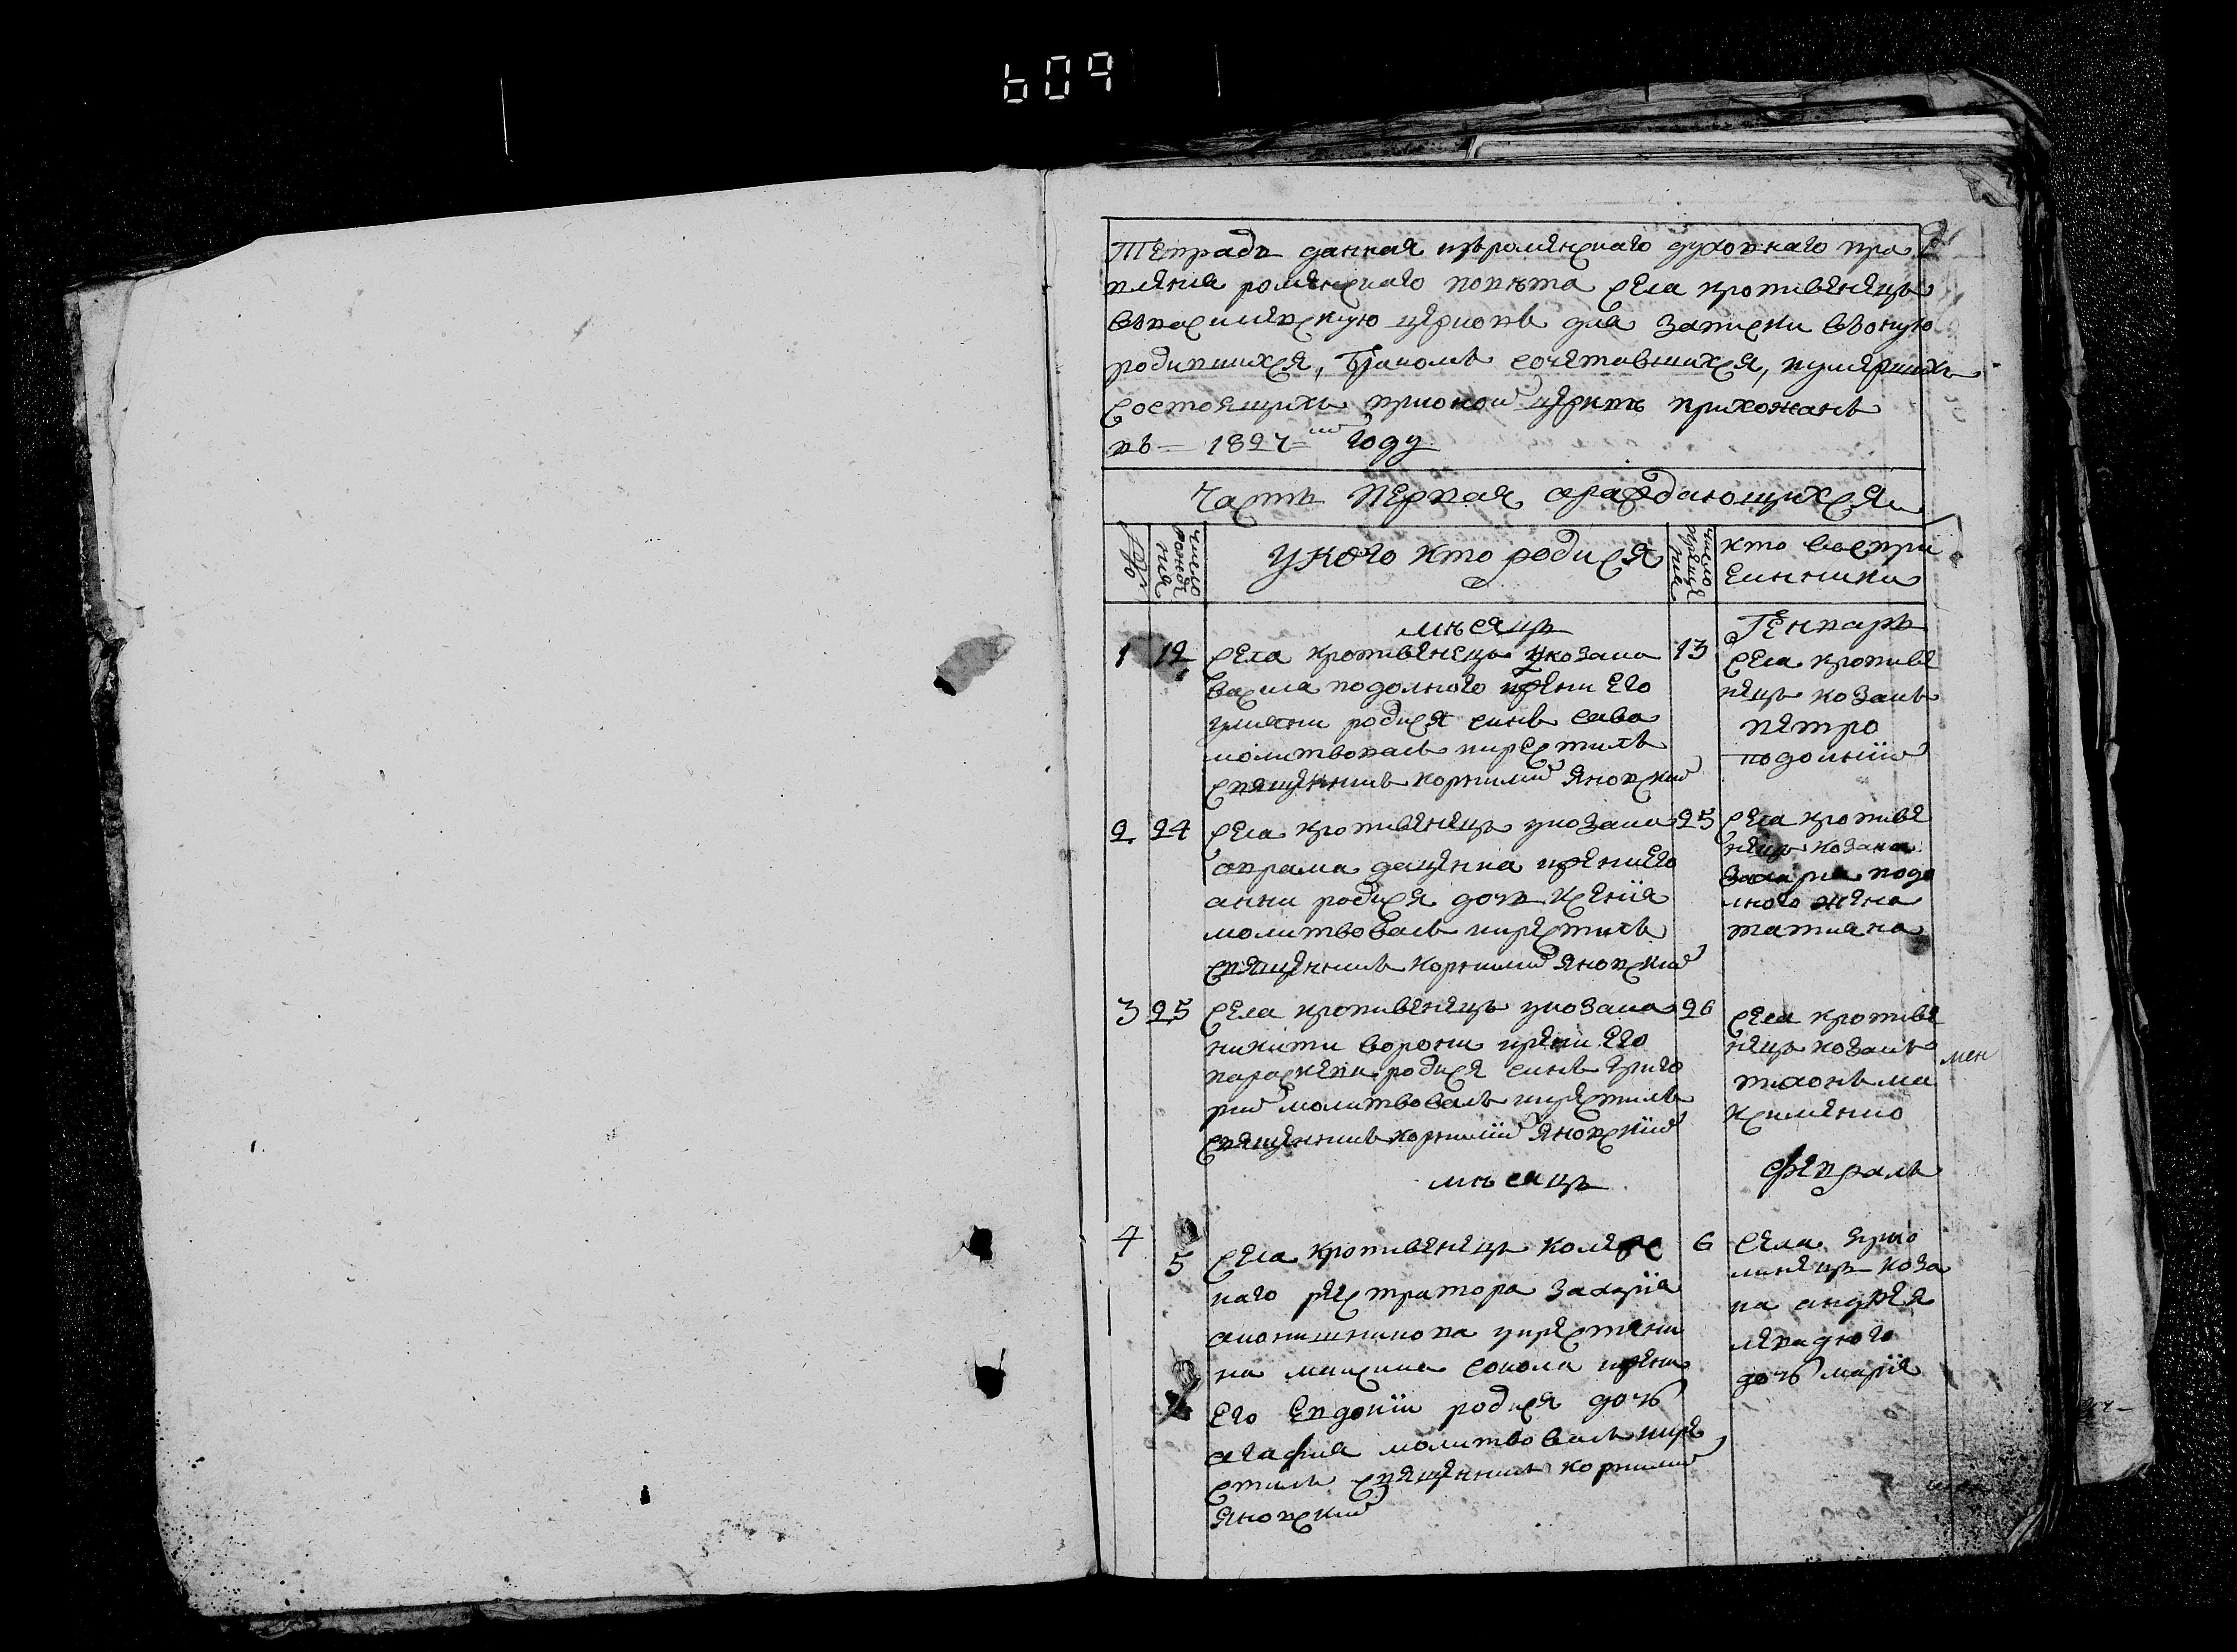 609
Тетрадь данная изроменскаго духовнаго пра
вления роменскаго повѣта села кропивенецъ
въвасилевскую церковъ для записки въоную
родившихся, бракомъ сочетавшихся, иумершихъ
состоящихъ прионой церкве прихожанъ
въ = 1827 = году
Часть первая ораждающихся
№
число рождения
укого кто родися
число крещения
кто воспри
емники
мѣсяцъ
Генварь
1 12 села кропивенецъ укозака
васила подолного ижени его
улияни родися синъ сава
молитвовалъ икрестилъ
священникъ корнилий яновский
13 села кропиве
нецъ козакъ
петро
подолний
2 24 села кропивенецъ укозака
аврама даценка ижениего
анни родися дочь ксения
молитвовалъ икрестилъ
священникъ корнилий яновский
25 села кропиве
нецъ козака
захария подо
лного жена
татиана
3 25 села кропивенецъ укозака
никити ворони ижени его
параскеви родися синъ григо
рий молитвовалъ икрестилъ
священникъ корнилїй яновскїй
26 села кропиве
нецъ козакъ
тихонъ ма
ксименко
мен
мѣсяцъ
февраль
4 5 села кропивенецъ колежс
каго регистратора захарїя
укрестяни
на максима сокола ижени
его евдокїи родися дочъ
агафия молитвовалъ икре
стилъ священникъ корнилий
яновский
6 села
коза
ка андрея
дочъ марїя